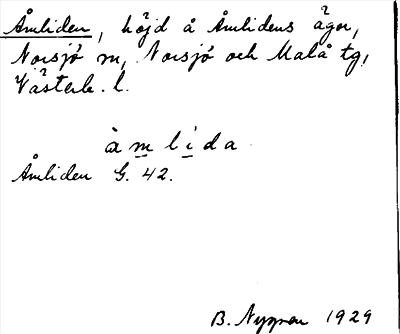 Åmliden, höjd å Åmlidens ägor,
Norsjö sn, Norsjö och Malå tg,
Västerb. l.
àmlida
Åmliden G. 42.
B. Nygren 1929